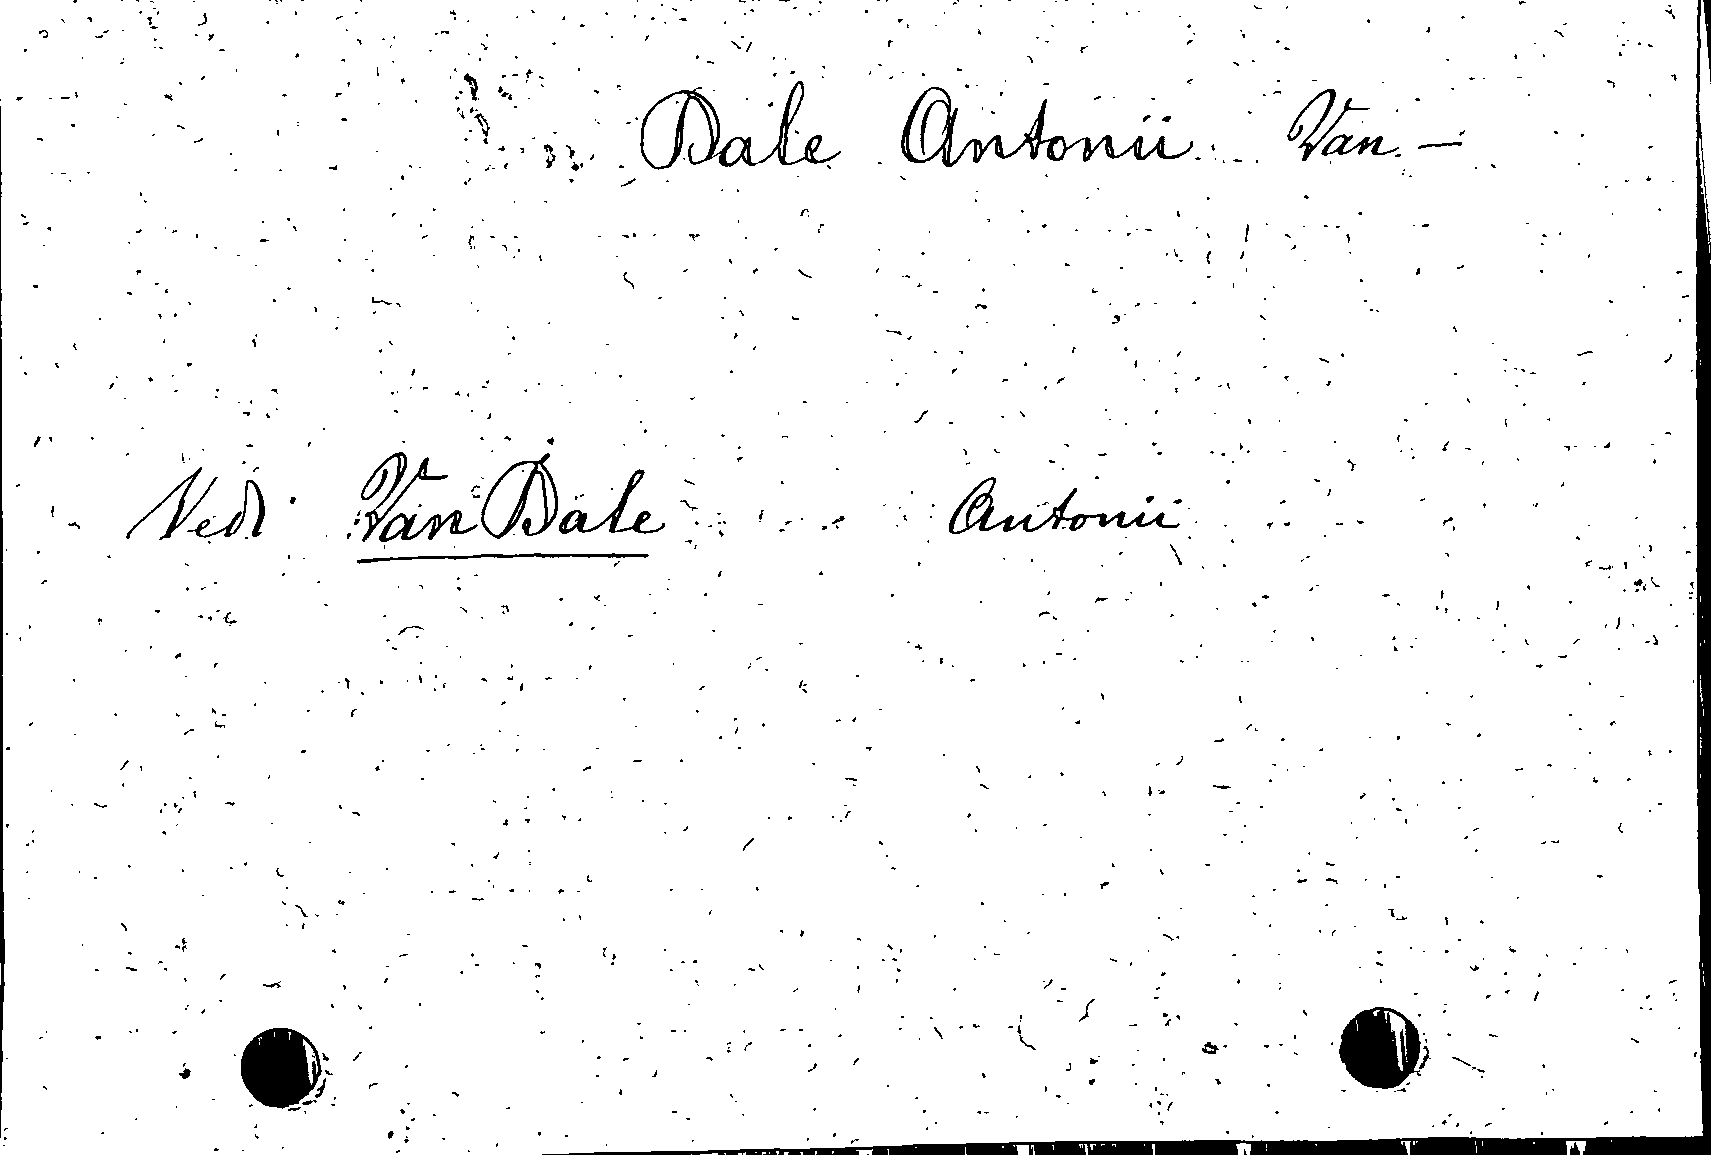 Dale Antonii Van. —
Vedi Van Dale Antonii